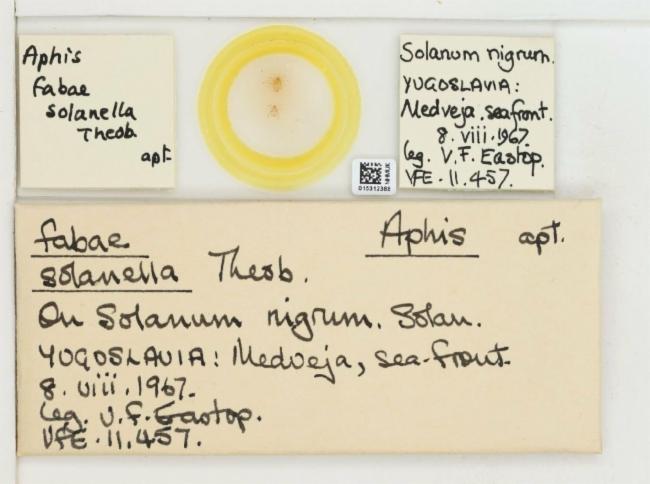 Aphis
fabae
solanella
Theob.
apt.
Solanum nigrum.
YUGOSLAVIA:
Medveja, seafront.
8. viii. 1967
leg. V.F. Eastop.
VFE. 11.457.
NHMUK
015312388
fabae Aphis apt.
solanella Theob.
On Solanum nigrum. Solan.
YUGOSLAVIA: Medveja, sea-front.
8. viii. 1967.
leg. V.F. Eastop.
VFE. 11.457.